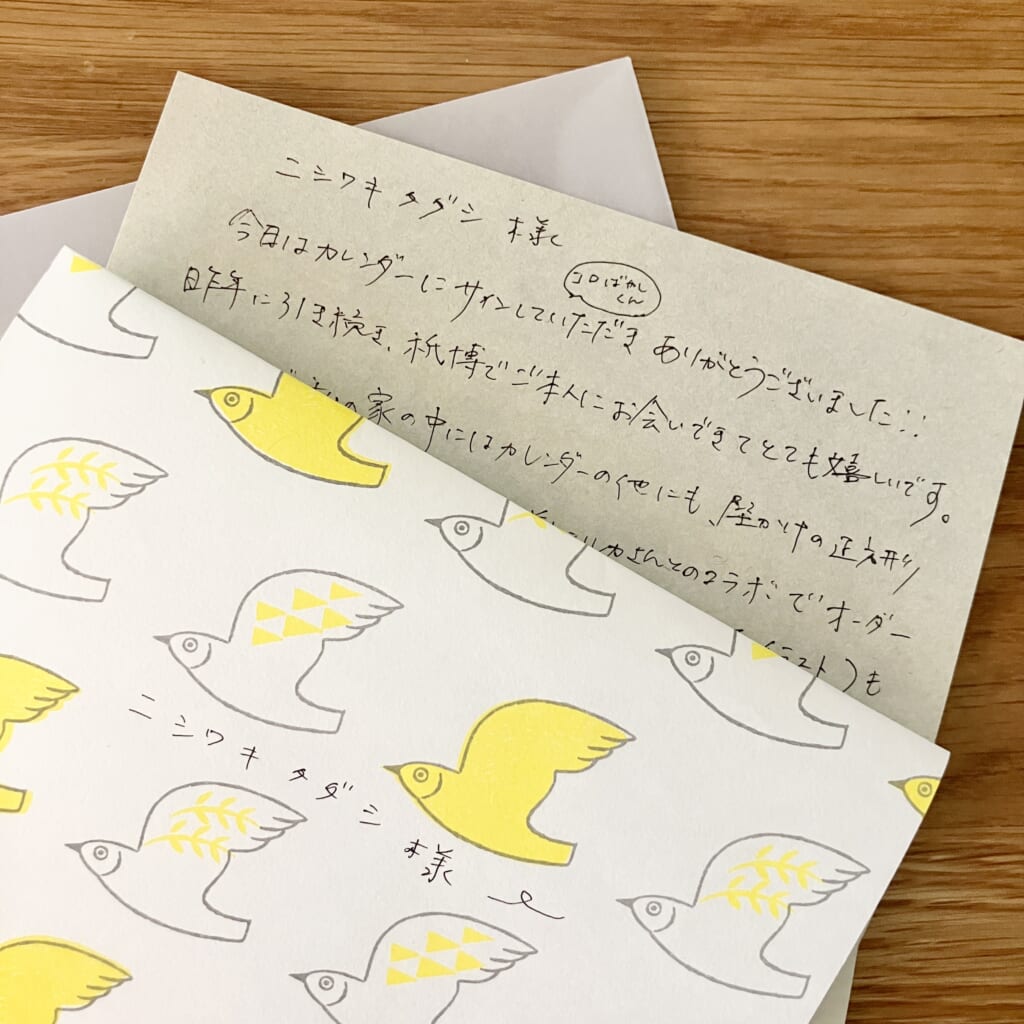 ニシワキタダシ 様
今日はカレンダーにサインしていただき ありがとうございました!!
コロばかし
くん
昨年に引き続き、紙博でご本人にお会いできてとても嬉しいです。
家の中にはカレンダーの他にも、壁かけの正方形
さんとのコラボでオーダー
ラスト)も
ニシワキタダシ 様